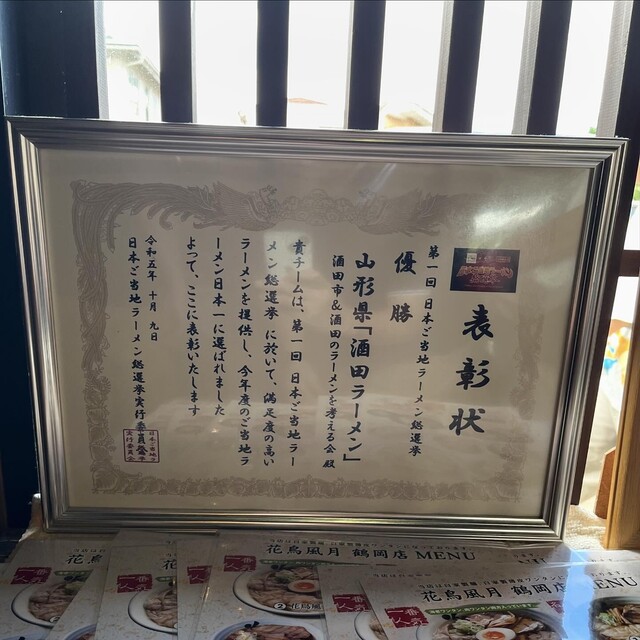 表彰状
第一回 日本ご当地ラーメン総選挙
優勝
山形県「酒田ラーメン」
酒田市＆酒田のラーメンを考える会 殿
貴チームは、第一回 日本ご当地ラー
メン総選挙 に於いて、満足度の高い
ラーメンを提供し、今年度のご当地ラ
ーメン日本一に選ばれました
よって、ここに表彰いたします
令和五年 十月 九日
日本ご当地ラーメン総選挙実行委員会
花鳥風月 鶴岡店 MENU
一番人気
花鳥風月 鶴岡店 MENU
一番人気
② 花鳥風